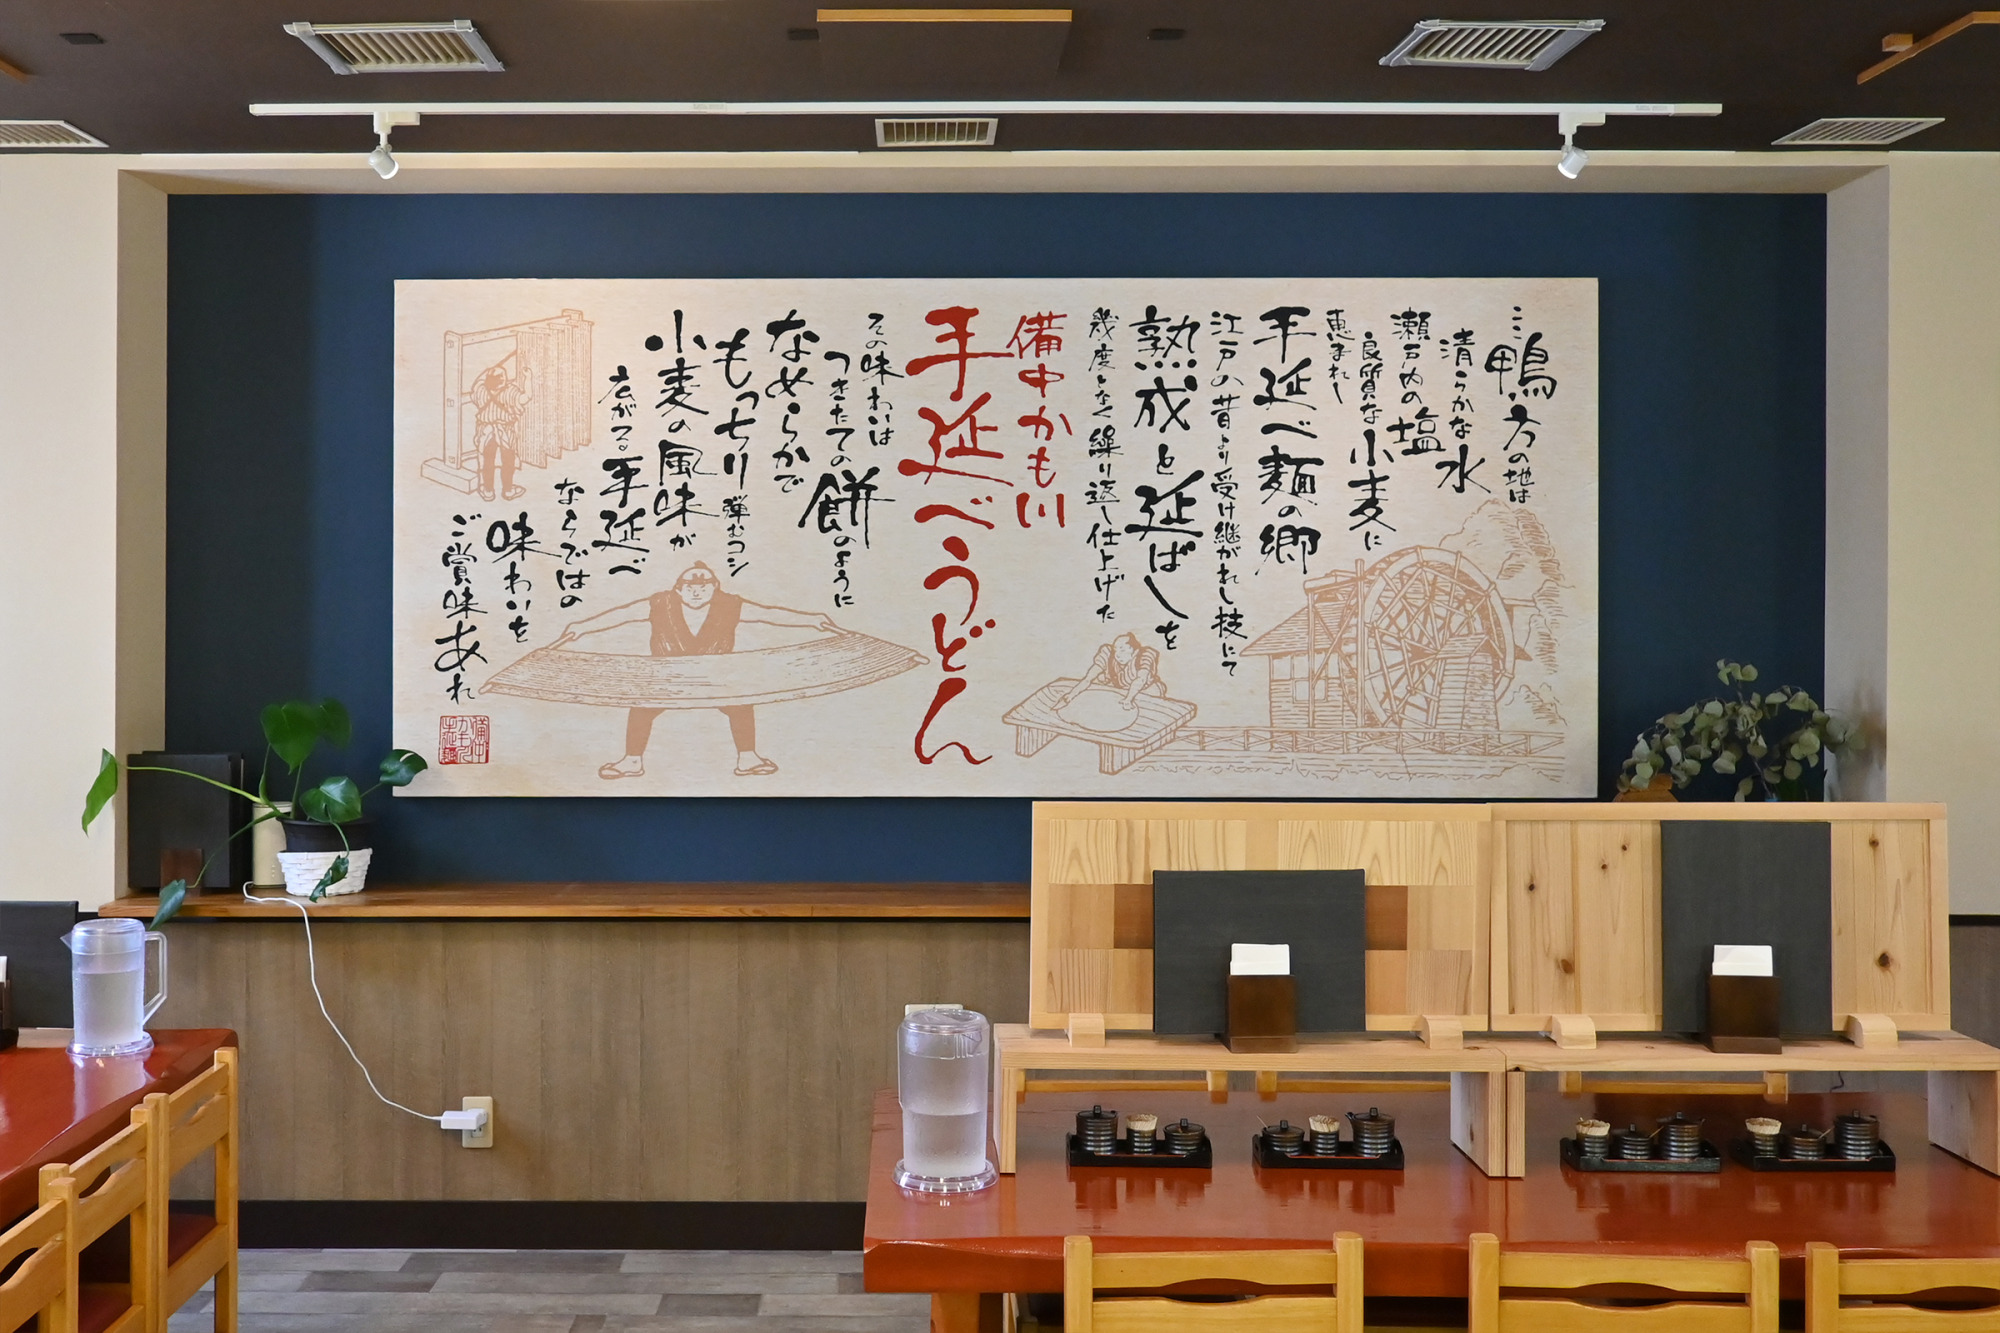 ここ鴨方の地は
清らかな水
瀬戸内の塩
良質な小麦に
恵まれし
手延べ麺の郷
江戸の昔より受け継がれし技にて
熟成と延ばしを
幾度となく繰り返し仕上げた
備中かも川
手延べうどん
その味わいは
つきたての餅のように
なめらかで
もっちり弾むコシ
小麦の風味が
広がる手延べ
ならではの
味わいを
ご賞味あれ
備中
かも川
手延麺